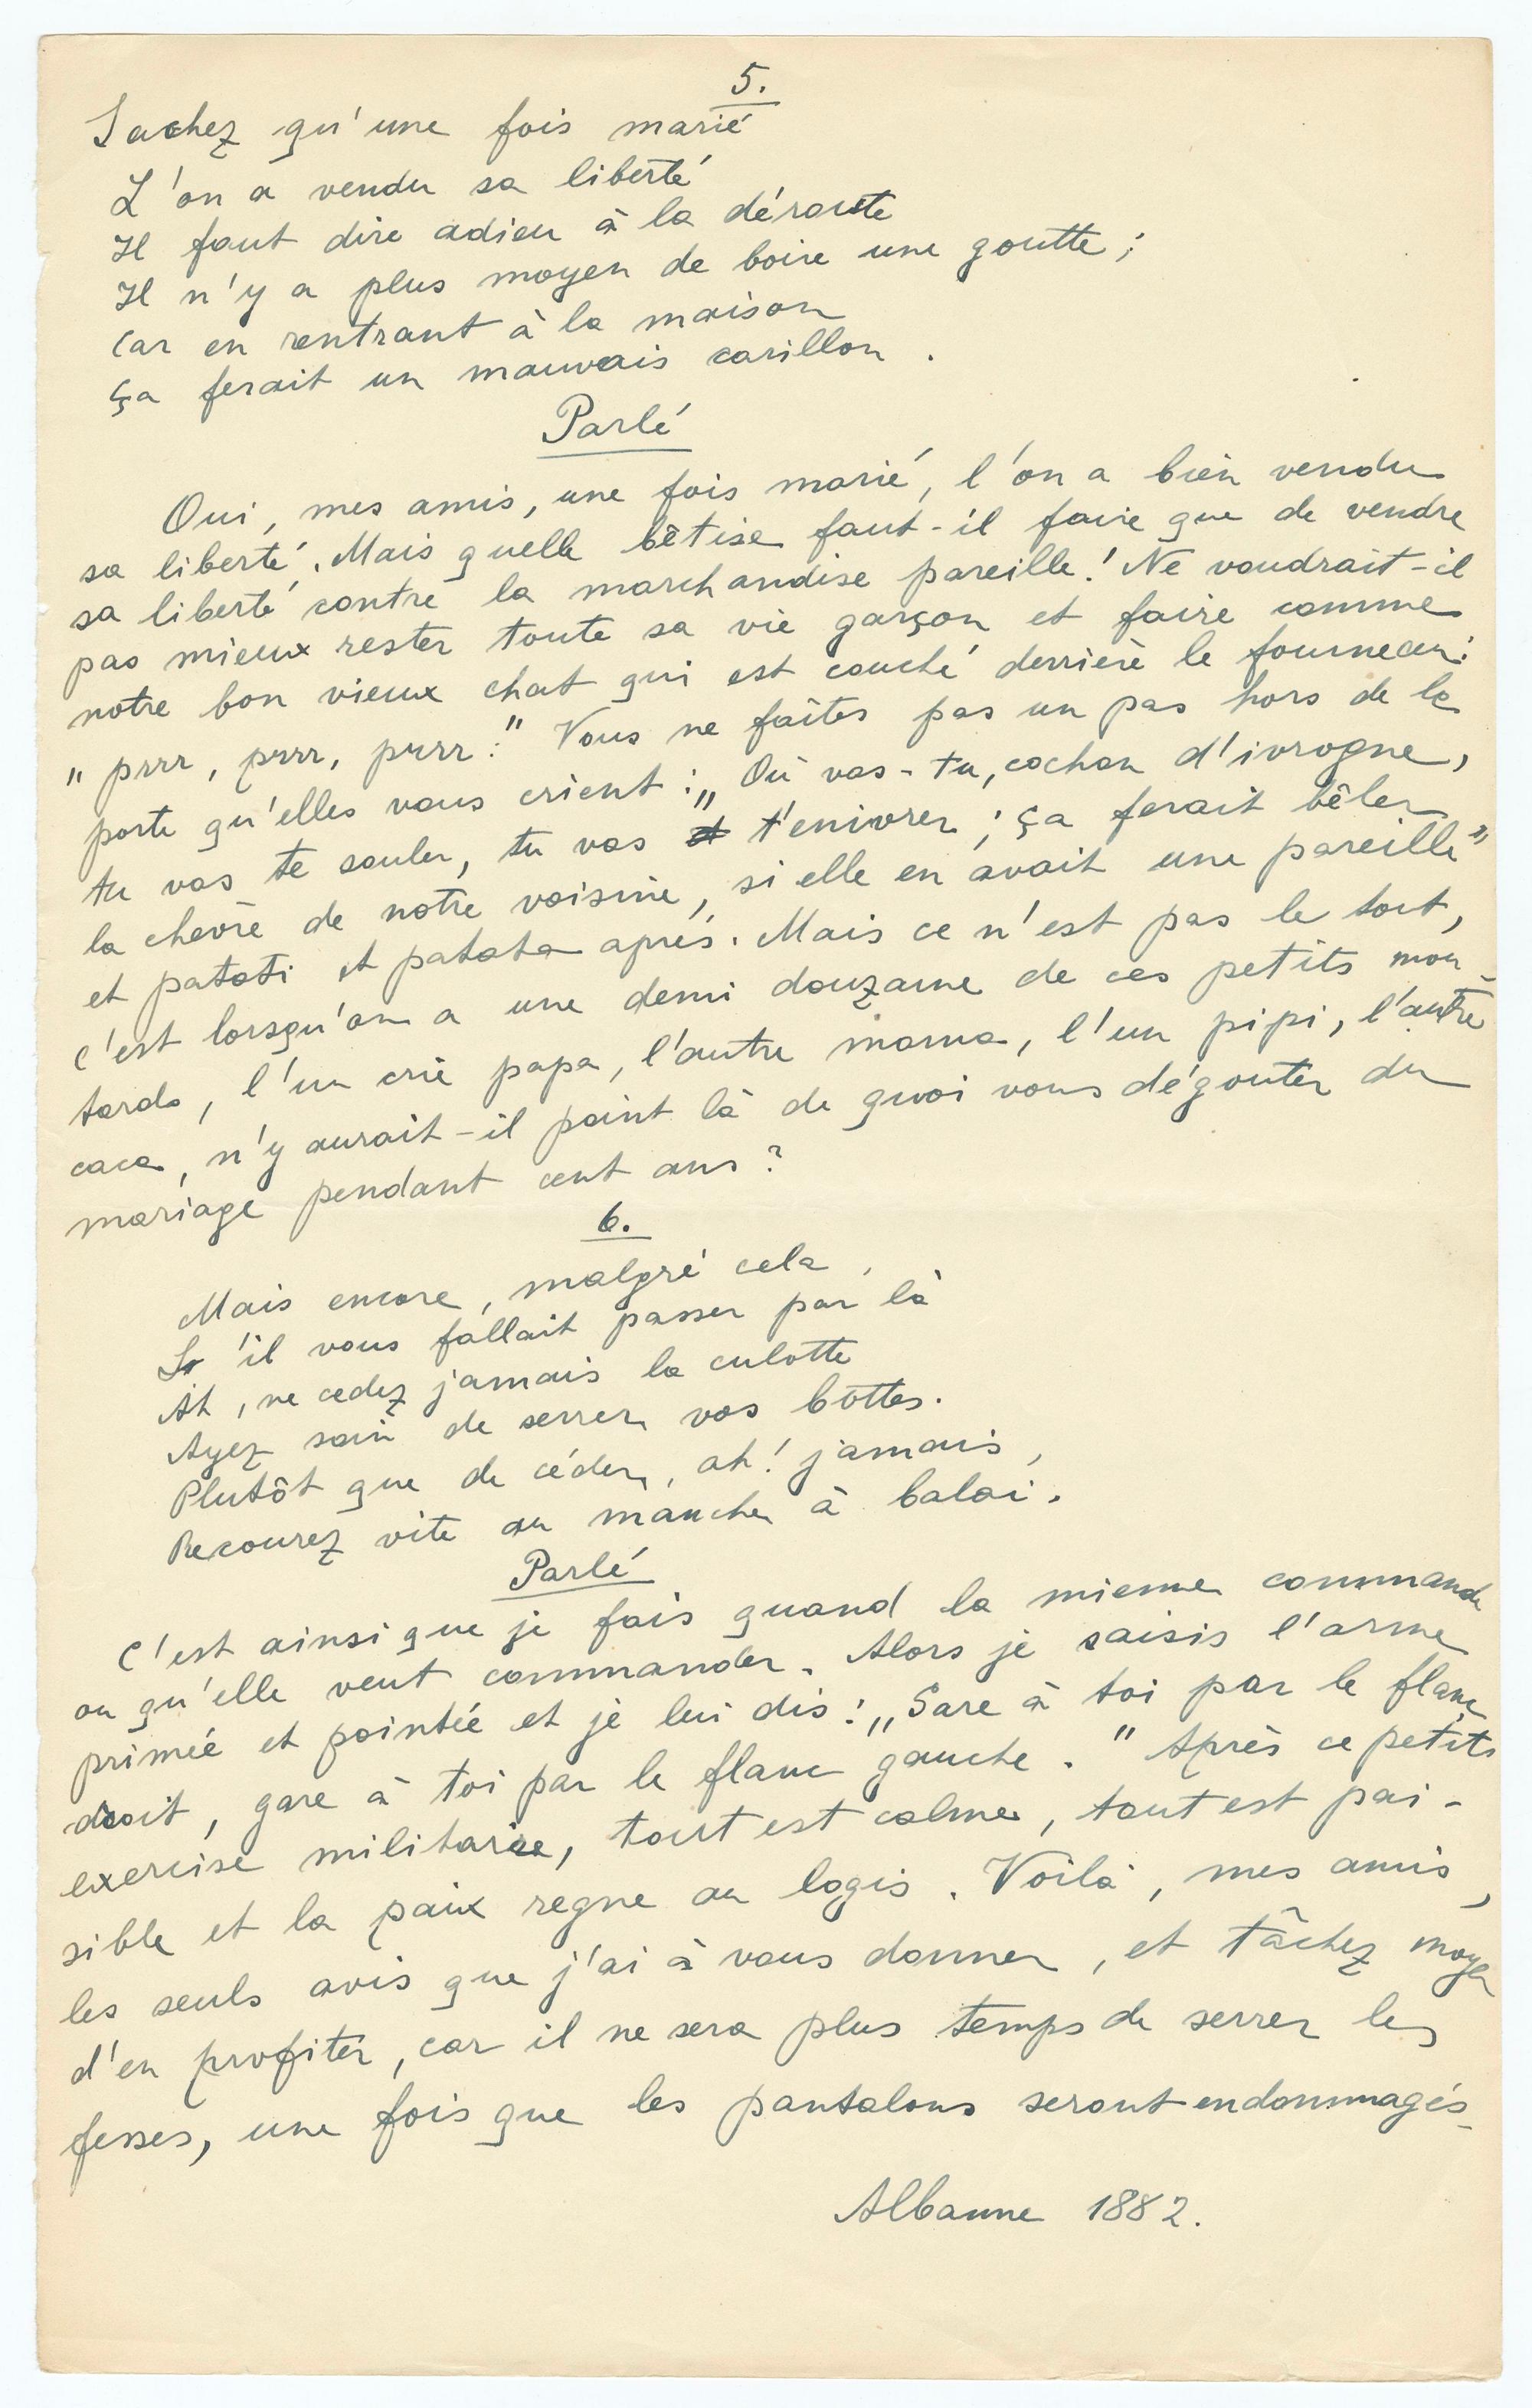 5.
Sachez qu'une fois marié
L'on a vendu sa liberté
Il faut dire adieu à la déroute
Il n'y a plus moyen de boire une goutte ;
Car en rentrant à la maison
Ça ferait un mauvais carillon .
Parlé
Oui, mes amis, une fois marié, l'on a bien vendu
sa liberté. Mais quelle bêtise faut-il faire que de vendre
sa liberté contre la marchandise pareille! Ne voudrait-il
pas mieux rester toute sa vie garçon et faire comme
notre bon vieux chat qui est couché derrière le fourneau:
" prrr, prrr, prrr:" Vous ne faites pas un pas hors de la
porte qu'elles vous crient : „ Où vas-tu, cochon d'ivrogne,
tu vas te souler, tu vas t'enivrer ; ça ferait bêler
la chevre de notre voisine, si elle en avait une pareille"
et patati et patata après. Mais ce n'est pas le tout,
c'est lorsqu'on a une demi douzaine de ces petits mou-
tards, l'un crie papa, l'autre mama, l'un pipi, l'autre
caca, n'y aurait-il point là de quoi vous dégouter du
mariage pendant cent ans ?
6.
Mais encore, malgré cela,
S'il vous fallait passer par là
Ah, ne cedez jamais la culotte
Ayez soin de serrer vos bottes.
Plutôt que de céder, ah! jamais,
Recourez vite au manche à balai.
Parlé
C'est ainsi que je fais quand la mienne commande
ou qu'elle veut commander. Alors je saisis l'arme
primée et pointée et je lui dis: „Gare à toi par le flanc
droit, gare à toi par le flanc gauche." Après ce petits
exercise militaire, tout est calme, tout est pai-
sible et la paix regne au logis. Voilà, mes amis,
les seuls avis que j'ai à vous donner, et tâchez moyen
d'en profiter, car il ne sera plus temps de serrer les
fesses, une fois que les pantalons seront endommagés.
Albanne 1882.